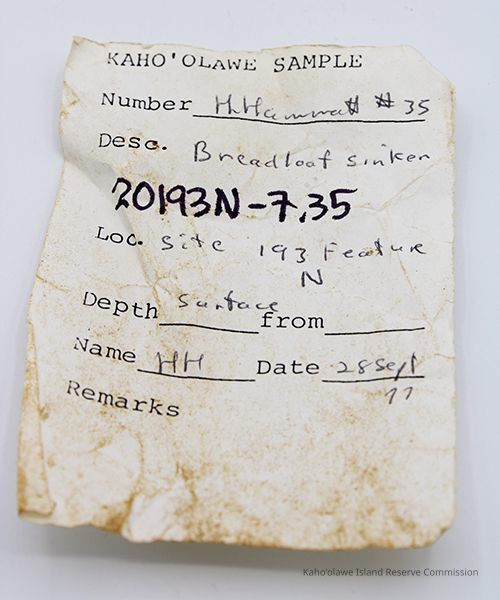 KAHO'OLAWE SAMPLE
Number H.Hammatt #35
Desc. Breadloaf sinker
20193N-7,35
Loc. Site 193 Feature
N
Depth Surface from
Name HH Date 28 Sept
77
Remarks
Kaho'olawe Island Reserve Commission